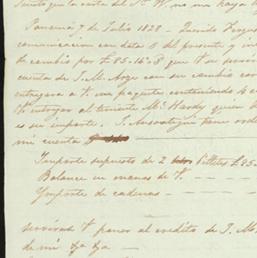 siento que la carta del Sr. W. no me haya
Panamá 7 de Julio 1828 - Querido
comunicacion con data 8 del presente y in
de cambio por £85.16.8 que V. se
cuenta de J. M. Arge con su cambio cor
entregara a V. un paquete conteniendo
V. entregar al teniente Mc Hardy quien
es su importe. J. Ansoategui tiene orde
mi cuenta
Importe supuesto de 2 Billetes £85
Balance en manos de V.
Importe de cadenas
servirá V. poner al credito de J. M.
de mi &a &a